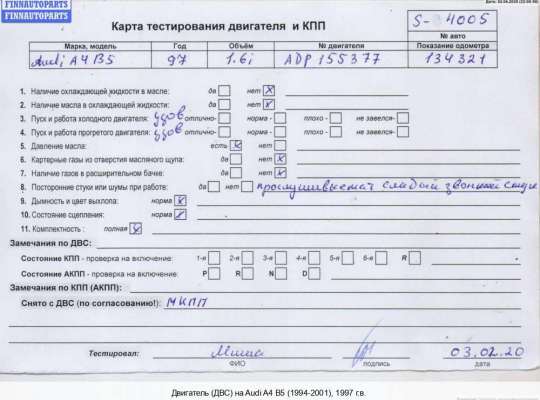 FINNAUTOPARTS
FINNAUTOPARTS
Карта тестирования двигателя и КПП
S- 4005
№ авто
Марка, модель Год Объём № двигателя Показание одометра
Audi A4 B5 97 1.6i ADP 155377 134321
1. Наличие охлаждающей жидкости в масле: да нет X
2. Наличие масла в охлаждающей жидкости: да нет X
3. Пуск и работа холодного двигателя: удов отлично- норма - плохо - не завелся-
4. Пуск и работа прогретого двигателя: удов отлично- норма - плохо - не завелся-
5. Давление масла: есть X нет
6. Картерные газы из отверстия масляного щупа: да нет X
7. Наличие газов в расширительном бачке: да нет X
8. Посторонние стуки или шумы при работе: да нет слабый
9. Дымность и цвет выхлопа: норма X
10. Состояние сцепления: норма X
11. Комплектность : полная X
Замечания по ДВС:
Состояние КПП - проверка на включение: 1-я 2-я 3-я 4-я 5-я 6-я R
Состояние АКПП - проверка на включение: P R N D
Замечания по КПП (АКПП):
Снято с ДВС (по согласованию!): МКПП
Тестировал: Миша 03.02.20
ФИО подпись дата
Двигатель (ДВС) на Audi A4 B5 (1994-2001), 1997 г.в.